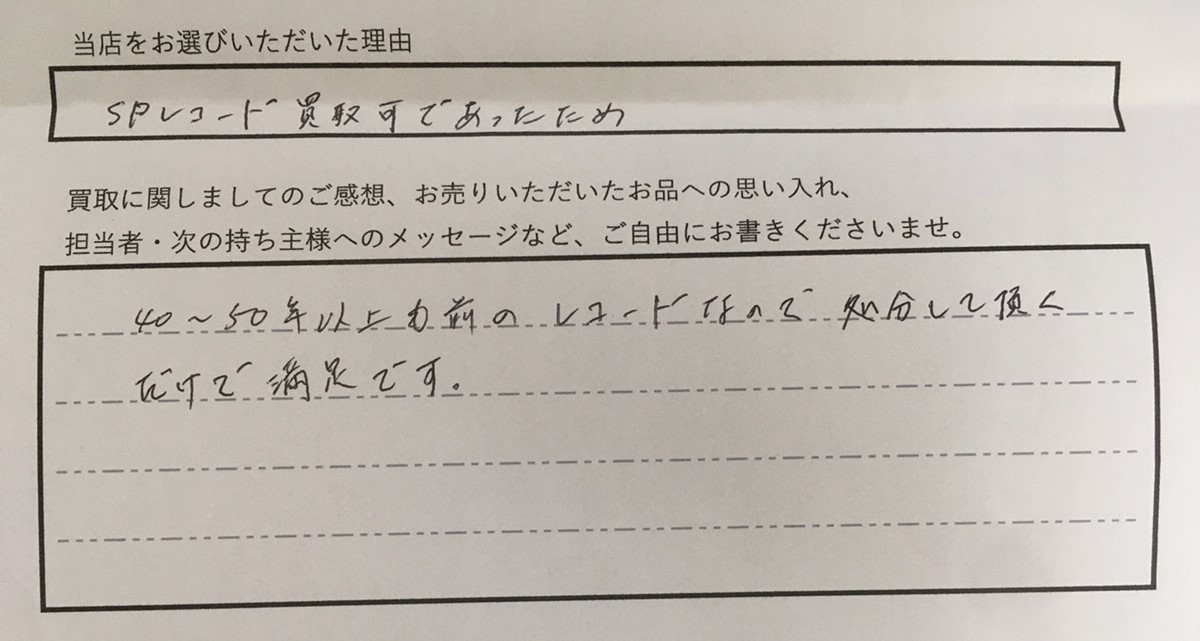 当店をお選びいただいた理由
SPレコード買取可であったため
買取に関しましてのご感想、お売りいただいたお品への思い入れ、
担当者・次の持ち主様へのメッセージなど、ご自由にお書きくださいませ。
40～50年以上も前のレコードなので処分して頂く
だけで満足です。